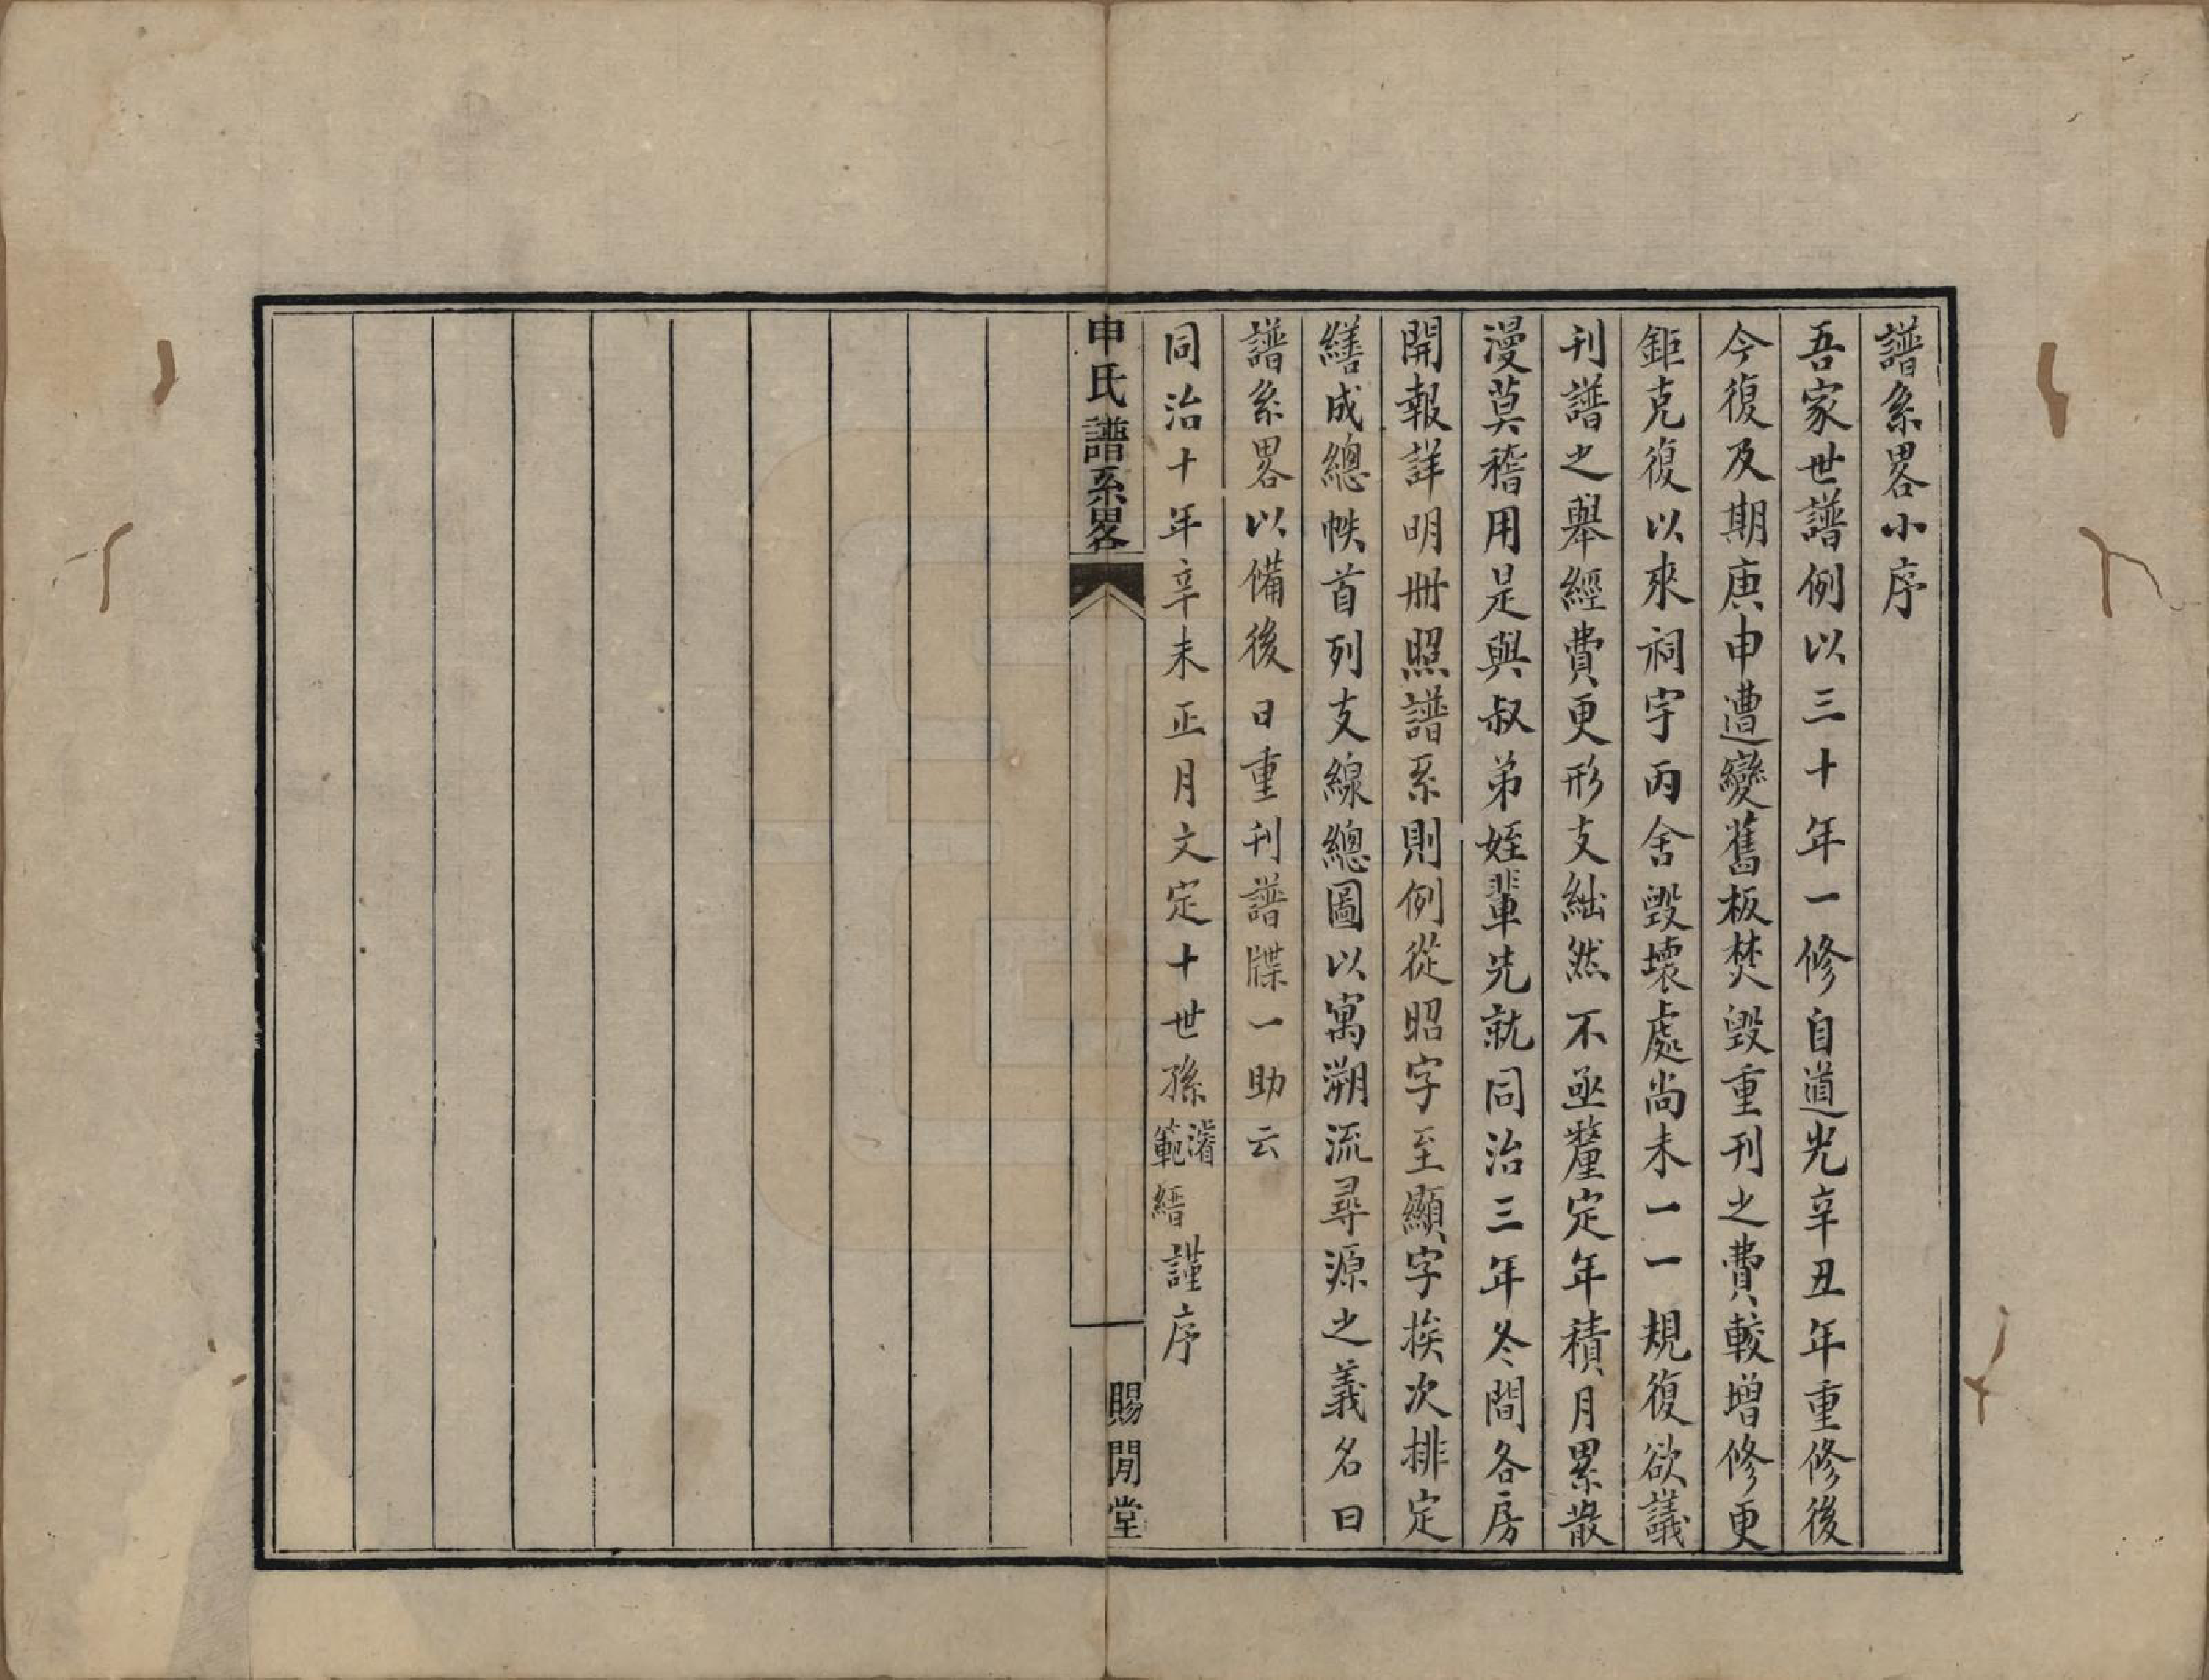 譜系畧小序
吾家世譜例以三十年一修自道光辛丑年重修後
今復及期庚申遭變舊板焚毀重刊之費較增修更
鉅克復以來祠宇丙舍毀壞處尚未一一規復欲議
刊譜之舉經費更形支絀然不亟釐定年積月累散
漫莫稽用是與叔弟姪輩先就同治三年冬間各房
開報詳明冊照譜系則例從昭字至顯字挨次排定
繕成總帙首列支線總圖以寓溯流尋源之義名曰
譜系畧以備後日重刊譜牒一助云
同治十年辛未正月文定十世孫濬範縉謹序
申氏譜系畧
賜閒堂